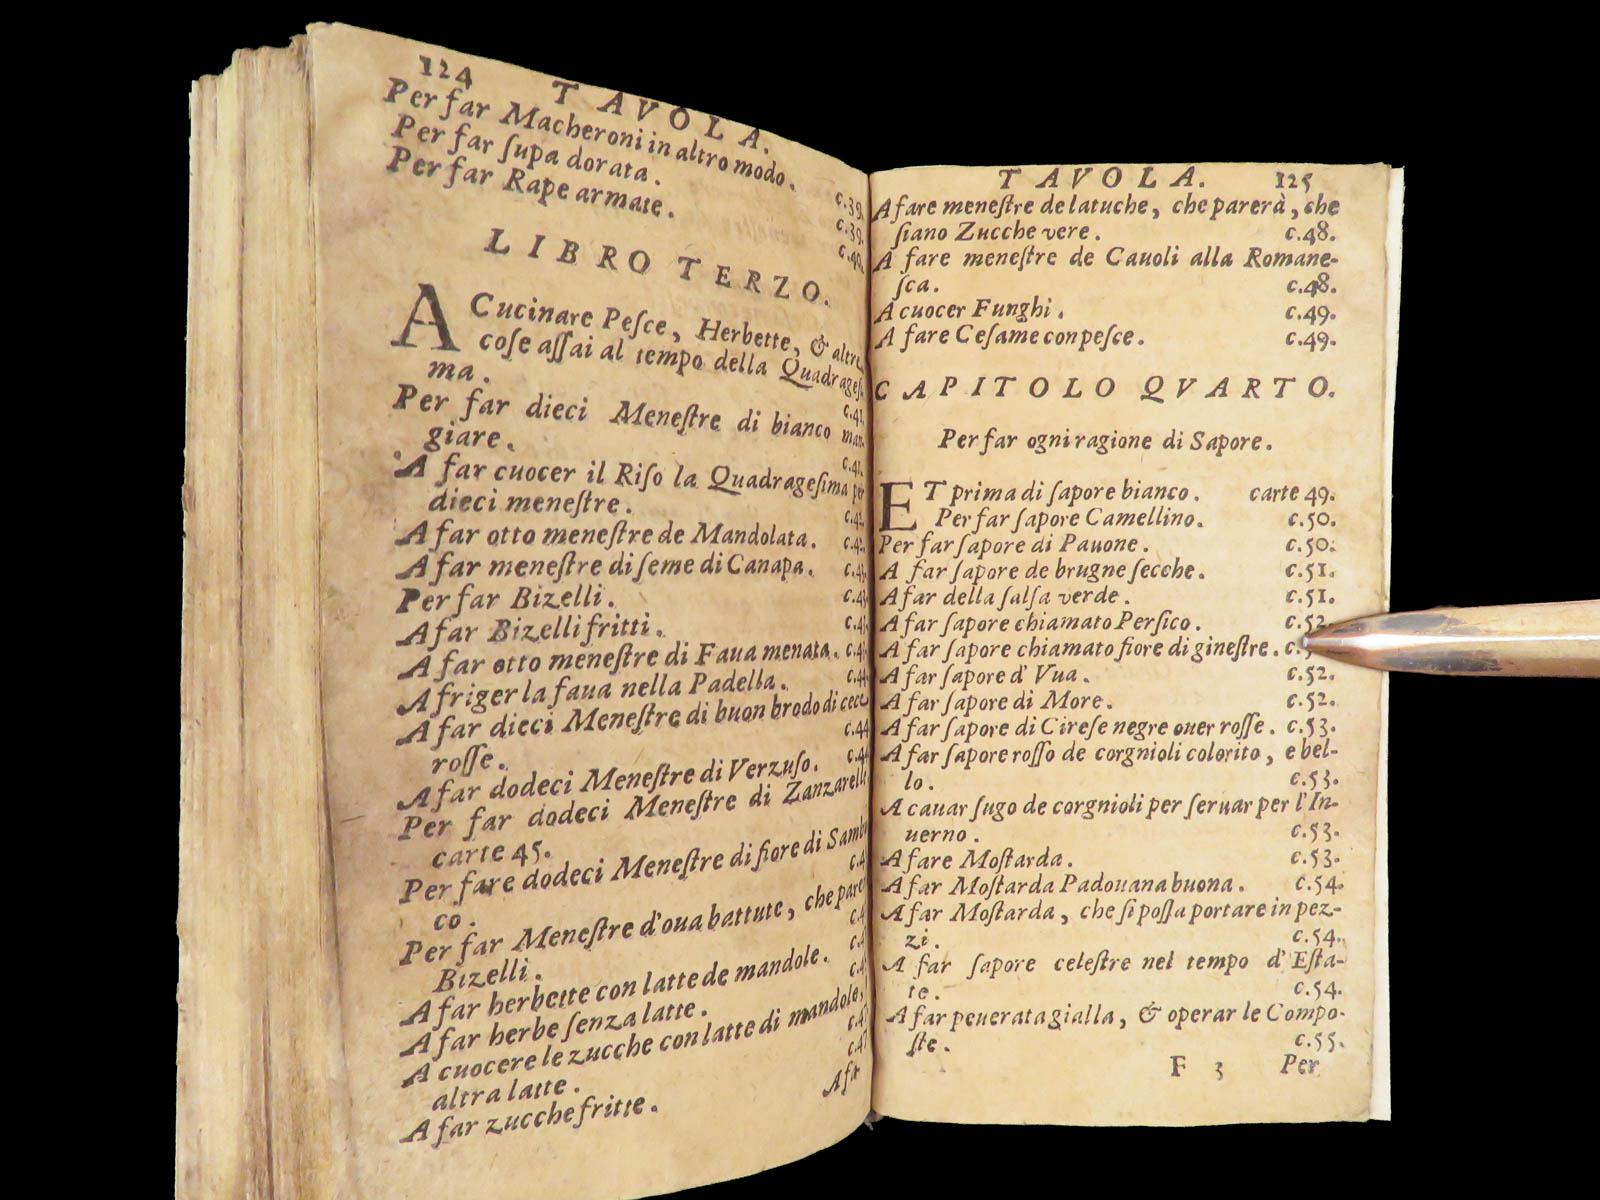 124 TAVOLA.
Per far Macheroni in altro modo. c.39.
Per far ſupa dorata. c.39.
Per far Rape armate. c.40.
LIBRO TERZO.
A Cucinare Peſce, Herbette, & altre
coſe aſſai al tempo della Quadrageſi
ma. c.41.
Per far dieci Meneſtre di bianco man
giare. c.41.
A far cuocer il Riſo la Quadrageſima per
dieci meneſtre. c.42.
A far otto meneſtre de Mandolata. c.42.
A far meneſtre di ſeme di Canapa. c.43.
Per far Bizelli. c.43
A far Bizelli fritti.
A far otto meneſtre di Faua menata.
A friger la faua nella Padella. c.44
A far dieci Meneſtre di buon brodo di cece
roſſe. c.44
A far dodeci Meneſtre di Verzuſo.
Per far dodeci Meneſtre di Zanzarelle
carte 45.
Per fare dodeci Meneſtre di fiore di Sambu
co.
Per far Meneſtre d'oua battute, che
Bizelli.
A far herbette con latte de mandole.
A far herbe ſenza latte.
A cuocere le zucche con latte di mandole,
altra latte. c.47
A far zucche fritte.
A far
TAVOLA. 125
A fare meneſtre de latuche, che parerà, che
ſiano Zucche vere. c.48.
A fare meneſtre de Cauoli alla Romane-
ſca. c.48.
A cuocer Funghi. c.49.
A fare Ceſame con peſce. c.49.
CAPITOLO QVARTO.
Per far ogni ragione di Sapore.
ET prima di ſapore bianco. carte 49.
Per far ſapore Camellino. c.50.
Per far ſapore di Pauone. c.50.
A far ſapore de brugne ſecche. c.51.
A far della ſalſa verde. c.51.
A far ſapore chiamato Perſico. c.52.
A far ſapore chiamato fiore di gineſtre.
A far ſapore d'Vua. c.52.
A far ſapore di More. c.52.
A far ſapore di Cireſe negre ouer roſſe. c.53.
A far ſapore roſſo de corgnioli colorito, e bel-
lo. c.53.
A cauar ſugo de corgnioli per ſeruar per l'In-
uerno. c.53.
A fare Moſtarda. c.53.
A far Moſtarda Padouana buona. c.54.
A far Moſtarda, che ſi poſſa portare in pez-
zi. c.54.
A far ſapore celeſtre nel tempo d'Eſta-
te. c.54.
A far peuerata gialla, & operar le Compo-
ſte. c.55.
F 3 Per